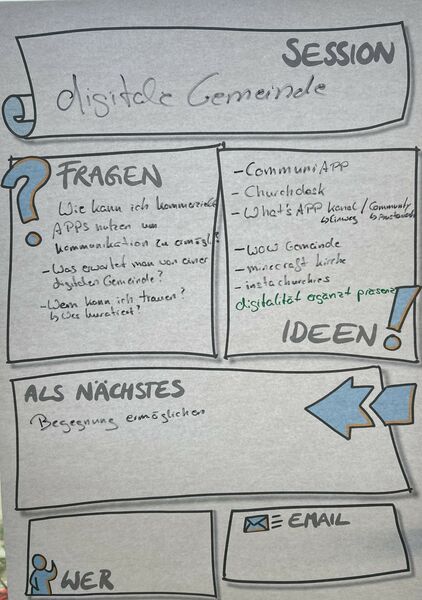 SESSION
digitale Gemeinde
FRAGEN
Wie kann ich kommerzielle
APPS nutzen um
Kommunikation zu ermögl.
- Was erwartet man von einer
digitalen Gemeinde?
- Wem kann ich trauen?
↳ Wer kuratiert?
- Communi APP
- Churchdesk
- What's APP kanal / Community
↳ Einweg ↳ Austausch
- WOW Gemeinde
- minecraft kirche
- instachurches
digitalität ergänzt präsenz
IDEEN!
ALS NÄCHSTES
Begegnung ermöglichen
WER
EMAIL